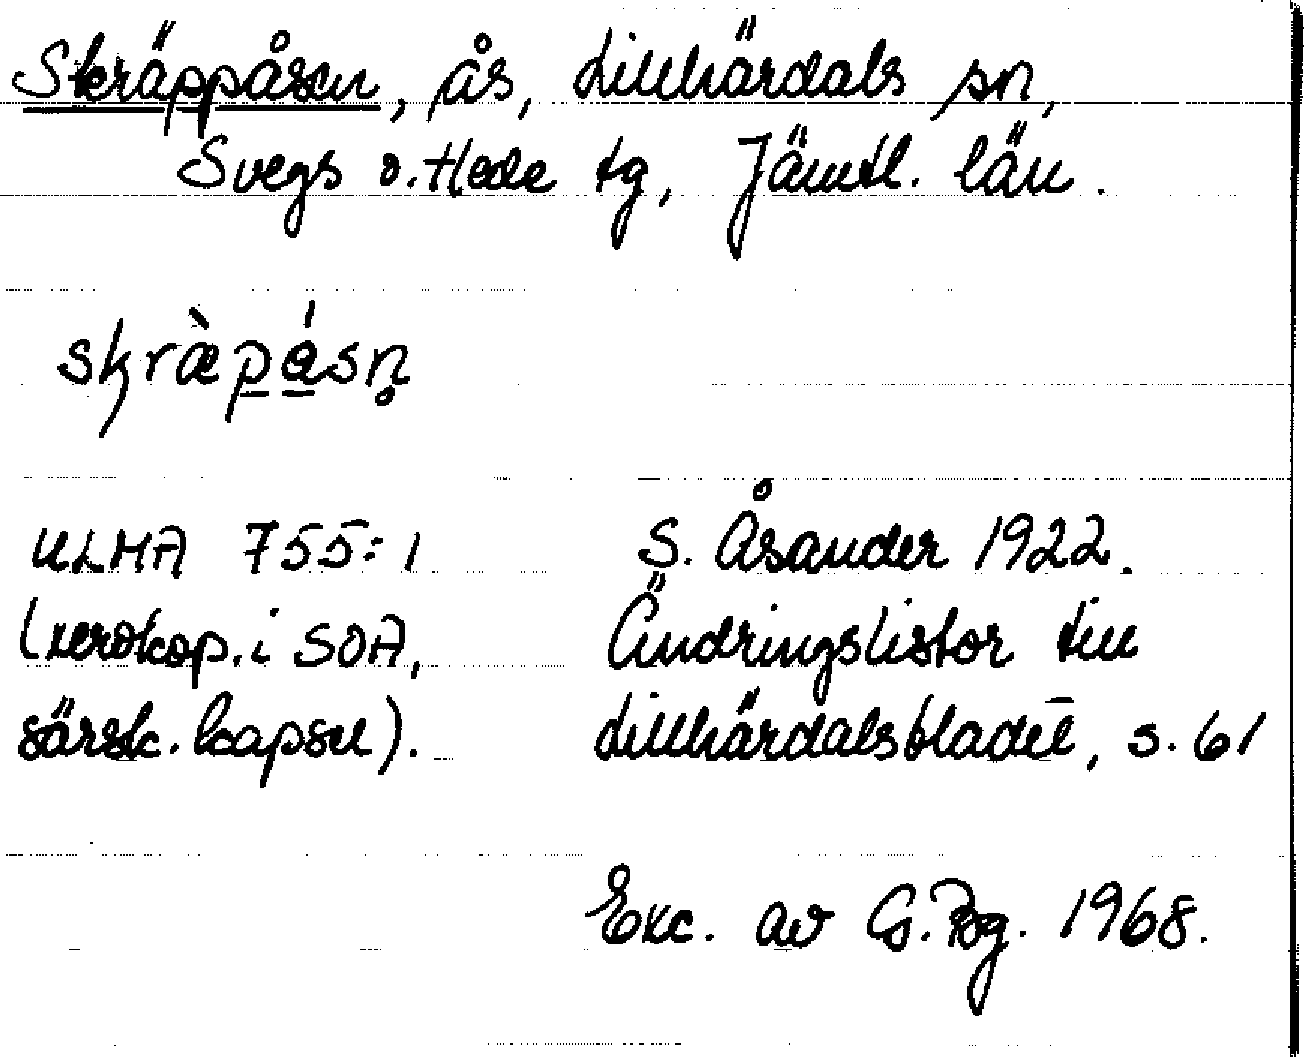 Skräppåsen, ås, Lillhärdals sn,
Svegs o. Hede tg, Jämtl. län.
skræ̀pásn̥
ULMA 755:1
(xerokop. i SOA,
särsk. kapsel).
S. Åsander 1922.
Ändringslistor till
Lillhärdalsbladet, s. 61
Exc. av G. Bg. 1968.